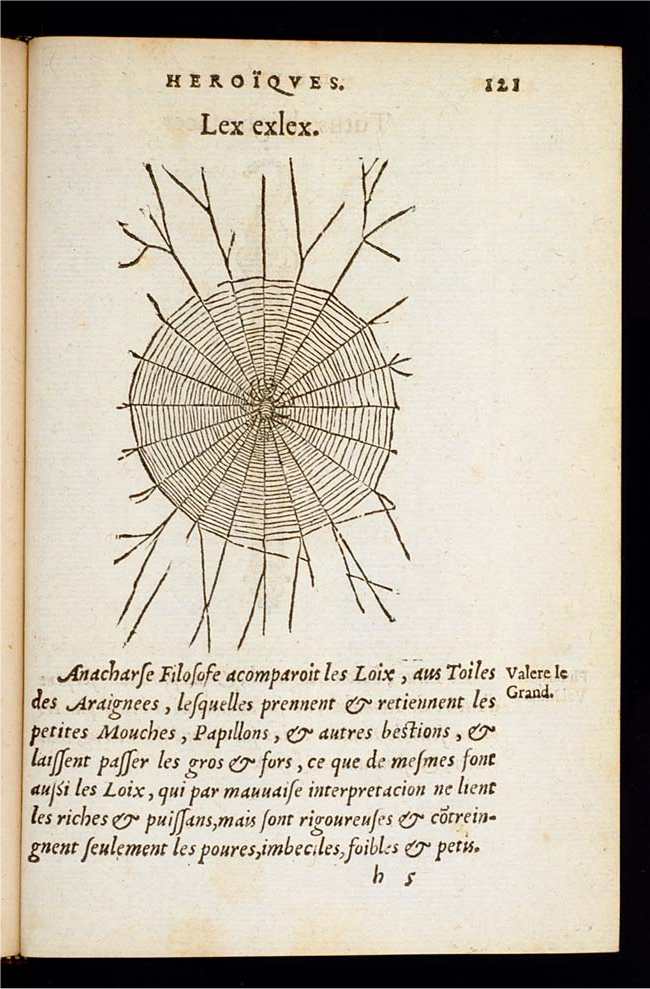 HEROÏQVES. 121
Lex exlex.
Anacharſe Filoſofe acomparoit les Loix, aus Toiles
Valere le
Grand.
des Araignees, leſquelles prennent & retiennent les
petites Mouches, Papillons, & autres beſtions, &
laiſſent paſſer les gros & fors, ce que de meſmes font
auſsi les Loix, qui par mauuaiſe interpretacion ne lient
les riches & puiſſans, mais ſont rigoureuſes & cõtrein-
gnent ſeulement les poures, imbeciles, foibles & petis.
h 5